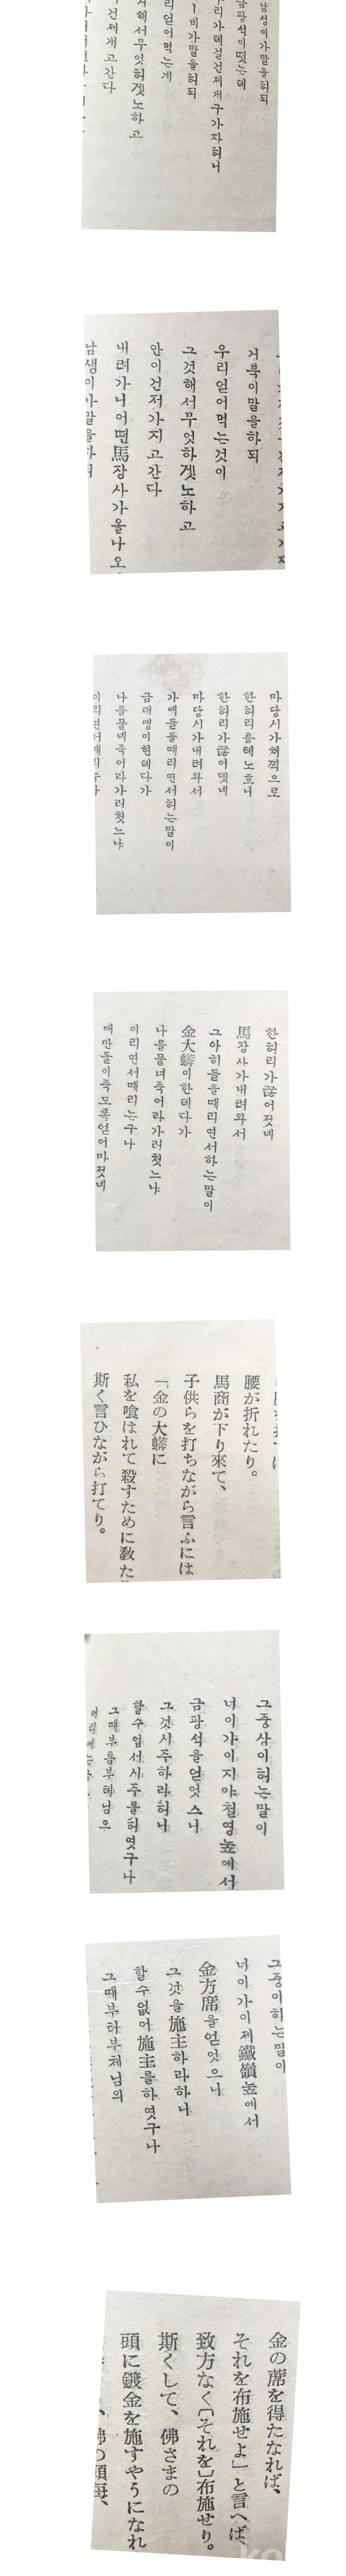 남성이가말을허되
금방석이떳는데
우리가데걸건제개구가자허니
비가말을허되
리얻어먹는게
거해서무엇허겟노하고
건제개고간다
거북이말을하되
우리얻어먹는것이
그것해서무엇하겟노하고
안이건저가지고간다
내려가너어떤馬장사가올나오
남생이가말을하되
마당시가채찍으로
한허리를테노흐니
한허리가끊어뎃네
마당시가내려와서
가애들올때리면서허는말이
금대맹이헌테다가
나를물녀죽어라가러첫느냐
이리면서때리누나
한허리가끊어젓네
馬장사가내려와서
그아히들을때리면서하는말이
金大蟒이한테다가
나를물녀죽어라가러첫느냐
이리면서때리는구나
매만들이죽도록얻어마젓네
腰が折れたり。
馬商が下り來て、
子供らを打ちながら言ふには
「金の大蟒に
私を喰はれて殺すために敎た
斯く言ひながら打てり。
그중상이허는말이
너이가이지야철영높에서
금광석을얻엇스니
그것시주하라허니
할수업서시주를허엿구나
그때부톰부톄님으
그중이하는말이
너이가이제鐵嶺높에서
金方席을얻엇으니
그것을施主하라하니
할수없어施主를하엿구나
그때부터부체님의
金の蓆を得たなれば、
それを布施せよ」と言へば、
致方なく〔それを〕布施せり。
斯くして、佛さまの
頭に鍍金を施すやうになれ
佛の頭每、